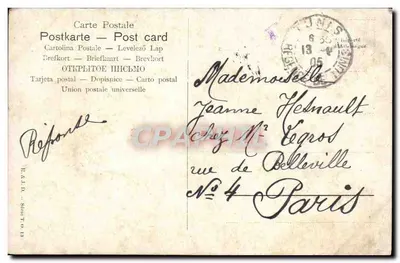 Carte Postale
Postkarte — Post card
Cartolina Postale — Levelező Lap
Brefkort — Briefkaart — Brevkort
ОТКРЫТОЕ ПИСЬМО
Tarjeta postal — Dopisnice — Carto postal
Union postale universelle
TUNIS
13
05
Réponse
Mademoiselle
Jeanne Hesnault
chez Mr Legros
rue de Belleville
No 4 Paris
CPARAMA